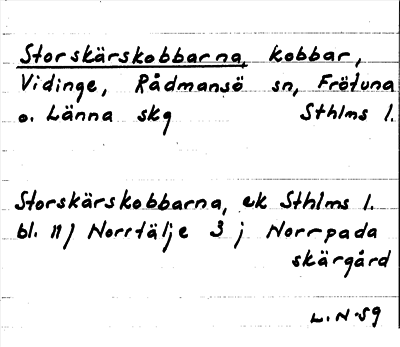 Storskärskobbarna, kobbar,
Vidinge, Rådmansö sn, Frötuna
o. Länna skg Sthlms l.
Storskärskobbarna, ek Sthlms l.
bl. 11) Norrtälje 3 ; Norrpada
skärgård
L.N-59